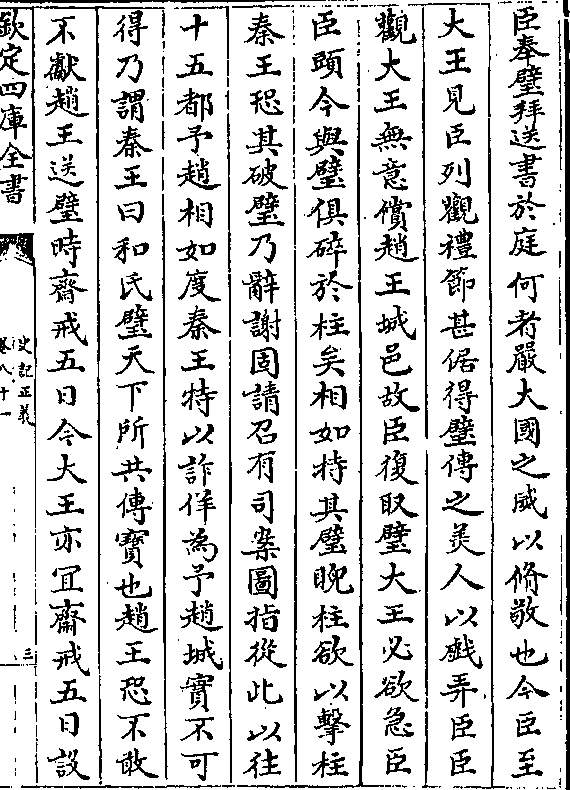 臣奉璧拜送書於庭何者嚴大國之威以脩敬也今臣至
大王見臣列觀禮節甚倨得璧傳之美人以戲弄臣臣
觀大王無意償趙王城邑故臣復取璧大王必欲急臣
臣頭今與璧俱碎於柱矣相如持其璧睨柱欲以擊柱
秦王恐其破璧乃辭謝固請召有司案圖指從此以往
十五都予趙相如度秦王特以詐佯為予趙城實不可
得乃謂秦王曰和氏璧天下所共傳寶也趙王恐不敢
不獻趙王送璧時齋戒五日今大王亦宜齋戒五日設
欽定四庫全書
史記正義
卷八十一
三